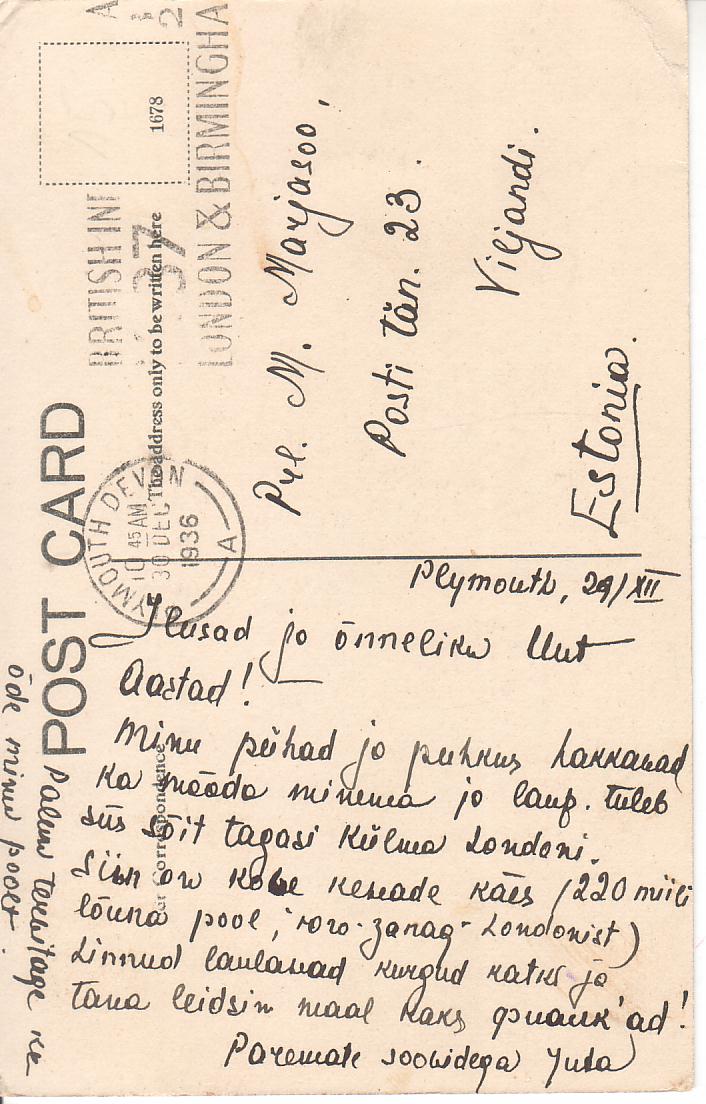 POST CARD
The address only to be written here
1678
BRITISH IN
37
LONDON & BIRMINGHA
PLYMOUTH DEVON
10 45 AM
30 DEC
1936
A
M. Marjasoo,
Posti tän. 23.
Viljandi.
Estonia.
For Correspondence
Plymouth, 29/XII
Ilusad ja õnneliku Uut
Aastad!
Minu pühad ja puhkus hakkawad
ka mööda minema ja laup. tuleb
siis sõit tagasi külma Londoni.
Siin on kewade käes (220 miili
lõuna pool, Londonist)
Linnud laulawad kurgud katki ja
täna leidsin maal kaks
Paremate soowidega Juta
Palun terwitage ka
õde minu poolt.